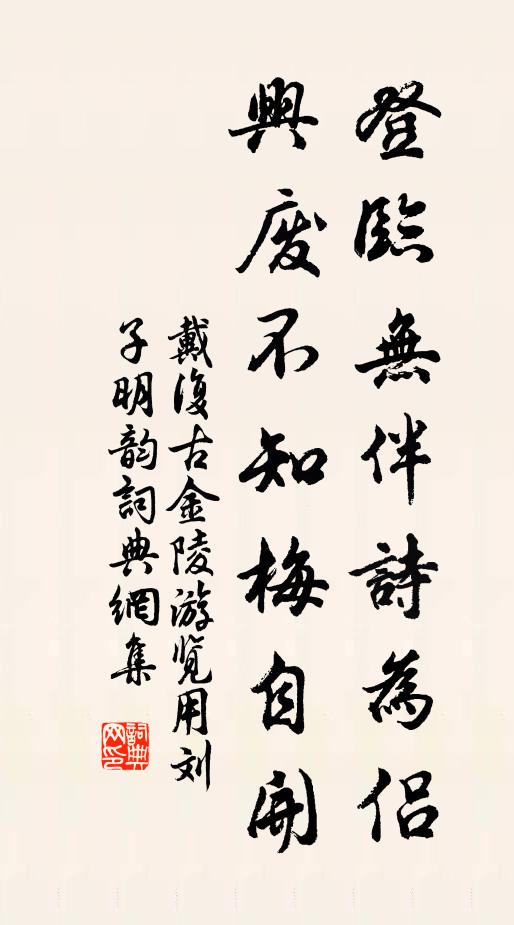 登臨無伴詩為侶
興废不知梅自開
戴復古金陵游览用刘
子明韵詞典網集
詞典网印